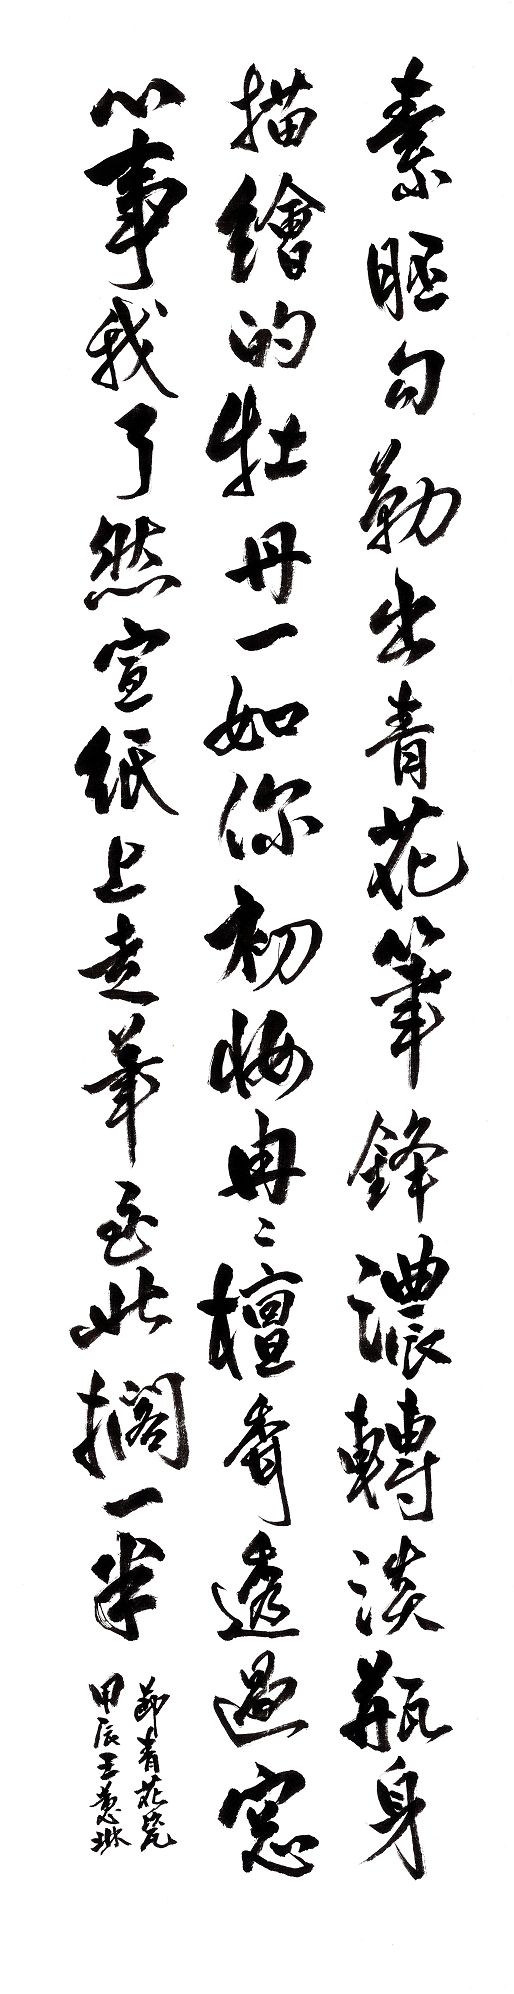 素胚勾勒出青花筆鋒濃轉淡瓶身
描繪的牡丹一如你初妝冉〻檀香透過窓
心事我了然宣紙上走筆至此擱一半
節青花瓷
甲辰王蕙琳